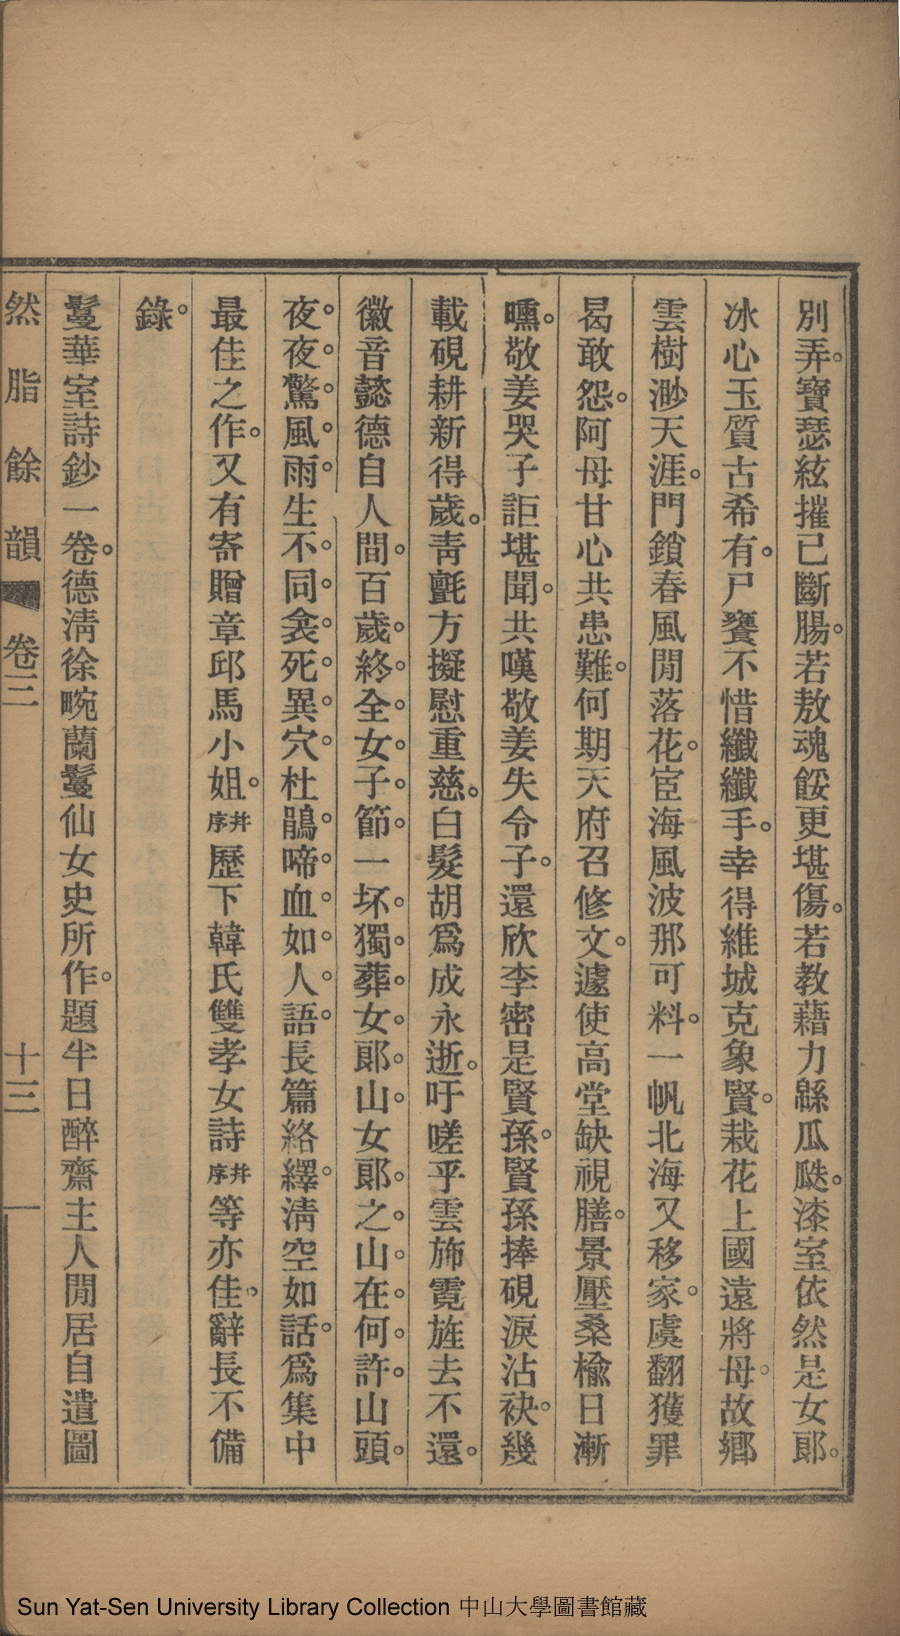 別弄。寶瑟絃摧已斷腸。若敖魂餒更堪傷。若教藉力緜瓜瓞。漆室依然是女郎。
冰心玉質古希有。尸饔不惜纖纖手。幸得維城克象賢。栽花上國遠將母。故鄉
雲樹渺天涯。門鎖春風閒落花。宦海風波那可料。一帆北海又移家。虞翻獲罪
曷敢怨。阿母甘心共患難。何期天府召修文。遽使高堂缺視膳。景壓桑榆日漸
曛。敬姜哭子詎堪聞。共嘆敬姜失令子。還欣李密是賢孫。賢孫捧硯淚沾袂。幾
載硯耕新得歲。靑氈方擬慰重慈。白髮胡爲成永逝。吁嗟乎雲斾霓旌去不還。
徽音懿德自人間。百歲。終。全。女。子。節。一坏。獨。葬。女。郞。山。女郞。之。山。在。何。許。山頭。
夜。夜。驚。風。雨。生不。同。衾。死。異。穴。杜鵑。啼。血。如。人。語。長篇絡繹。淸空如話。爲集中
最佳之作。又有寄贈章邱馬小姐。并序歷下韓氏雙孝女詩并序等亦佳。辭長不備
錄。
鬘華室詩鈔一卷。德淸徐畹蘭鬘仙女史所作。題半日醉齋主人閒居自遣圖
然脂餘韻 卷三 十三 一
Sun Yat-Sen University Library Collection 中山大學圖書館藏